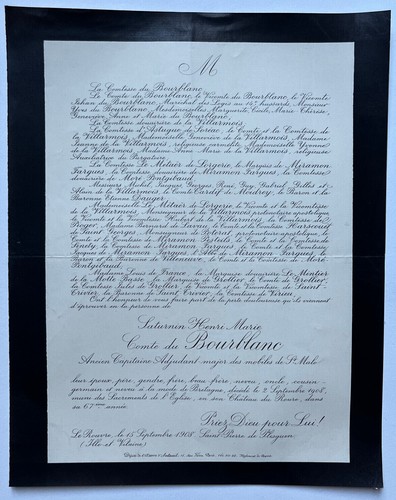 M
La Comtesse du Bourblanc,
Le Comte du Bourblanc, le Vicomte du Bourblanc, le Vicomte
Jehan du Bourblanc, Maréchal des Logis au 14e hussards, Monsieur
Yves du Bourblanc, Mesdemoiselles Marguerite, Cécile, Marie Thérèse,
Geneviève, Anne et Marie du Bourblanc,
La Comtesse douairière de la Villarmois,
La Comtesse d'Astugue de Soréac, le Comte et la Comtesse de
la Villarmois, Mademoiselle Geneviève de la Villarmois, Madame
Jeanne de la Villarmois, religieuse carmélite, Mademoiselle Yvonne
de la Villarmois, Madame Anne Marie de la Villarmois, religieuse
Auxiliatrice du Purgatoire,
La Comtesse Le Métaër de Lorgerie, le Marquis de Miramon
Fargues, la Comtesse douairière de Miramon Fargues, la Comtesse
douairière de Moré Pontgibaud,
Messieurs Michel, Jacques, Georges, René, Guy, Gabriel, Gilles et
Alain de la Villarmois, le Comte Cardif de Moidrey, le Baron et la
Baronne Etienne Danger,
Mademoiselle Le Métaër de Lorgerie, le Vicomte et la Vicomtesse
de la Villarmois, Monseigneur de la Villarmois, protonotaire apostolique,
le Vicomte et la Vicomtesse Hubert de la Villarmois, la Comtesse de
Roger, Madame Bernard de Lavau, le Comte et la Comtesse
de Saint Georges, Monseigneur de protonotaire apostolique,
le Comte et la Comtesse de Miramon Pestels, le Comte et la Comtesse de
le Comte et la Comtesse de Miramon Fargues, le Comte et la Comtesse
Jacques de Miramon Fargues, l'Abbé de Miramon Fargues, le
Baron et la Baronne de Villeneuve, le Comte et la Comtesse de Moré
Pontgibaud,
Madame Louis de France, la Marquise douairière Le Mintier
de la Motte Basse, la Marquise de Grollier, le Comte de Grollier,
la Comtesse Jules de Grollier, le Vicomte et la Vicomtesse de Saint-
Trivier, la Baronne de Saint Trivier, la Comtesse de Virieu,
Ont l'honneur de vous faire part de la perte douloureuse qu'ils viennent
d'éprouver en la personne de
Saturnin Henri Marie
Comte du Bourblanc
Ancien Capitaine Adjudant-major des mobiles de St Malo
leur époux, père, gendre, frère, beau frère, neveu, oncle, cousin-
germain et neveu à la mode de Bretagne, décédé le 2 Septembre 1908,
muni des Sacrements de l'Eglise, en son Château du Rouvre, dans
sa 67ème année.
Priez Dieu pour Lui!
Le Rouvre, le 15 Septembre 1908. Saint Pierre de Plesguen
(Ille et Vilaine)